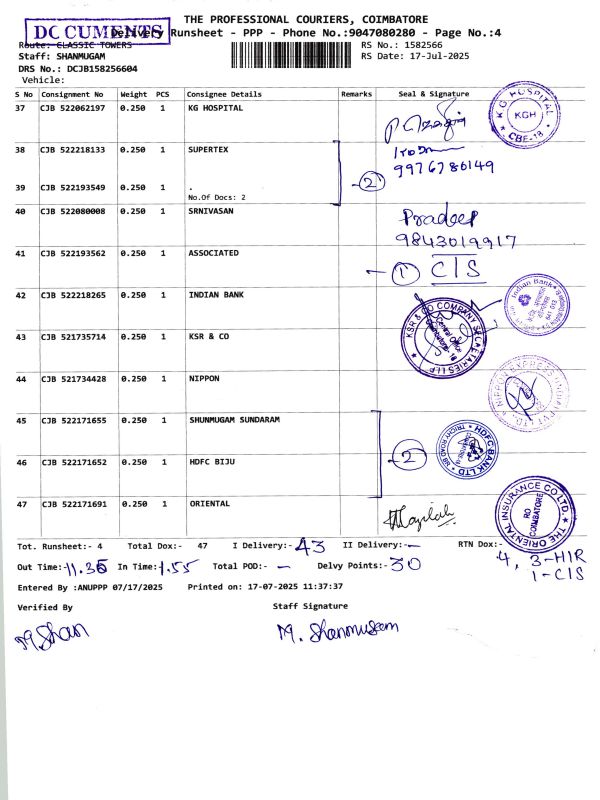 THE PROFESSIONAL COURIERS, COIMBATORE
DOCUMENTS
Delivery Runsheet - PPP - Phone No.:9047080280 - Page No.:4
Route: CLASSIC TOWERS
RS No.: 1582566
Staff: SHANMUGAM
RS Date: 17-Jul-2025
DRS No.: DCJB158256604
Vehicle:
S No Consignment No Weight PCS Consignee Details Remarks Seal & Signature
37 CJB 522062197 0.250 1 KG HOSPITAL
KG HOSPITAL KGH CBE-18
38 CJB 522218133 0.250 1 SUPERTEX
9976780149
39 CJB 522193549 0.250 1 .
No.Of Docs: 2
2
40 CJB 522080008 0.250 1 SRNIVASAN
Pradeep
9843019917
41 CJB 522193562 0.250 1 ASSOCIATED
1 CIS
42 CJB 522218265 0.250 1 INDIAN BANK
Indian Bank
43 CJB 521735714 0.250 1 KSR & CO
KSR & CO COMPANY SECRETARIES LLP
44 CJB 521734428 0.250 1 NIPPON
NIPPON EXPRESS
45 CJB 522171655 0.250 1 SHUNMUGAM SUNDARAM
46 CJB 522171652 0.250 1 HDFC BIJU
2
HDFC BANK LTD
47 CJB 522171691 0.250 1 ORIENTAL
THE ORIENTAL INSURANCE CO LTD. RO COIMBATORE
Tot. Runsheet:- 4 Total Dox:- 47 I Delivery:- 43 II Delivery:- RTN Dox:- 4, 3-HIR
1-CIS
Out Time:- 11.35 In Time:- 1.55 Total POD:- - Delvy Points:- 30
Entered By :ANUPPP 07/17/2025 Printed on: 17-07-2025 11:37:37
Verified By Staff Signature
M. Shan M. Shanmugam